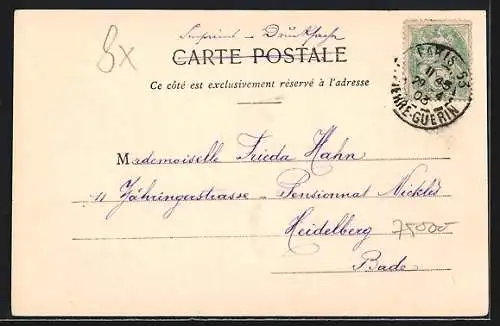 Imprimé – Drucksache
CARTE POSTALE
Ce côté est exclusivement réservé à l'adresse
PARIS 53
PIERRE-GUERIN
03
Mademoiselle Frieda Hahn
11 Zähringerstrasse – Pensionnat Nicklès
Heidelberg
75000
Bade